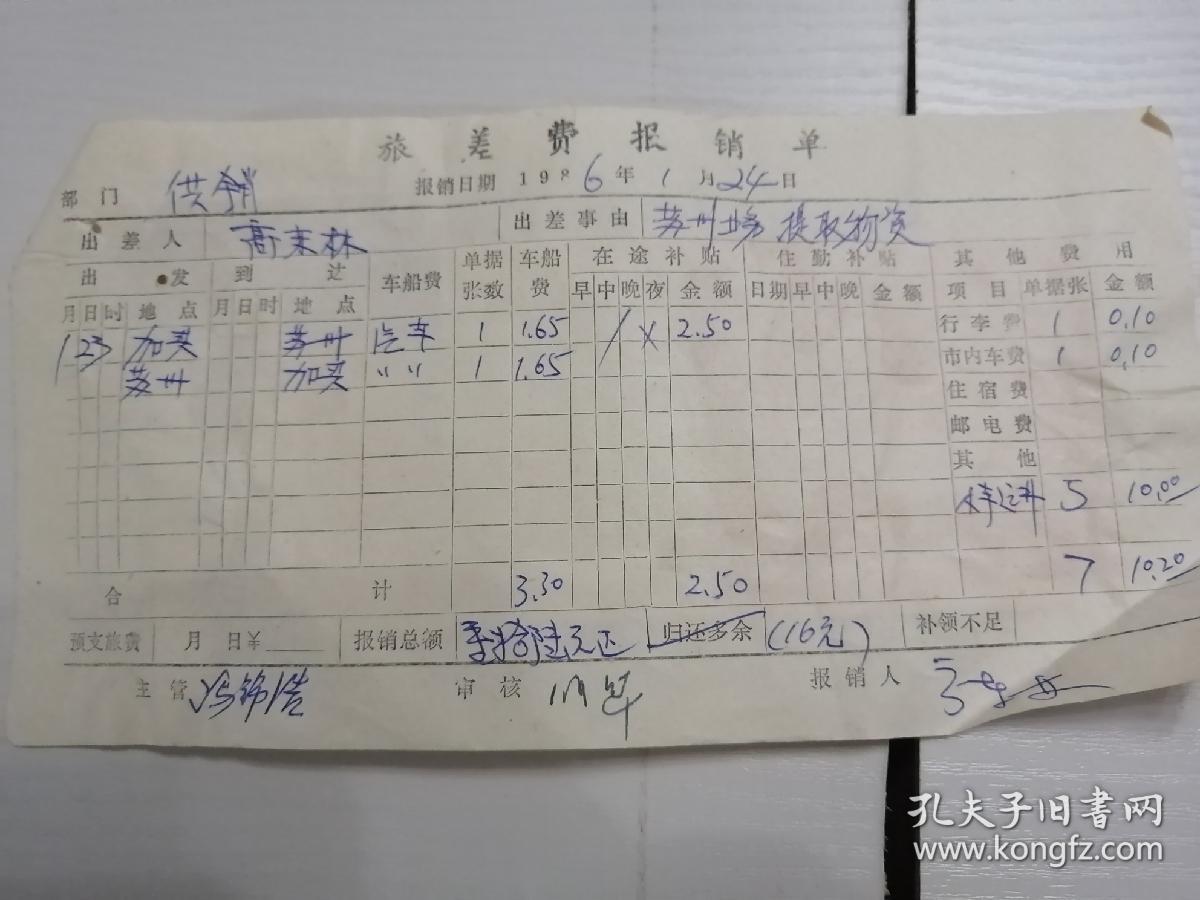 旅差费报销单
部门 供销 报销日期 1986年1月24日
出差人 高末林 出差事由 苏州 提取物资
出发 到达 车船费 单据张数 车船费 在途补贴 住勤补贴 其他费用
月 日 时 地点 月 日 时 地点 早 中 晚 夜 金额 日期 早 中 晚 金额 项目 单据张 金额
1 23 加买 苏州 汽车 1 1.65 / X 2.50 行李费 1 0.10
苏州 加买 〃 〃 1 1.65 市内车费 1 0.10
住宿费
邮电费
其他
5 10.00
7 10.20
合计 3.30 2.50
预支旅费 月 日¥ 报销总额 壹拾陆元正 归还多余 (16元) 补领不足
主管 冯锦浩 审核 报销人
孔夫子旧书网
www.kongfz.com